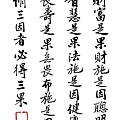 財富是果財施是因聰明
智慧是果法施是因健康
長壽是果無畏布施是因
備三因者必得三果